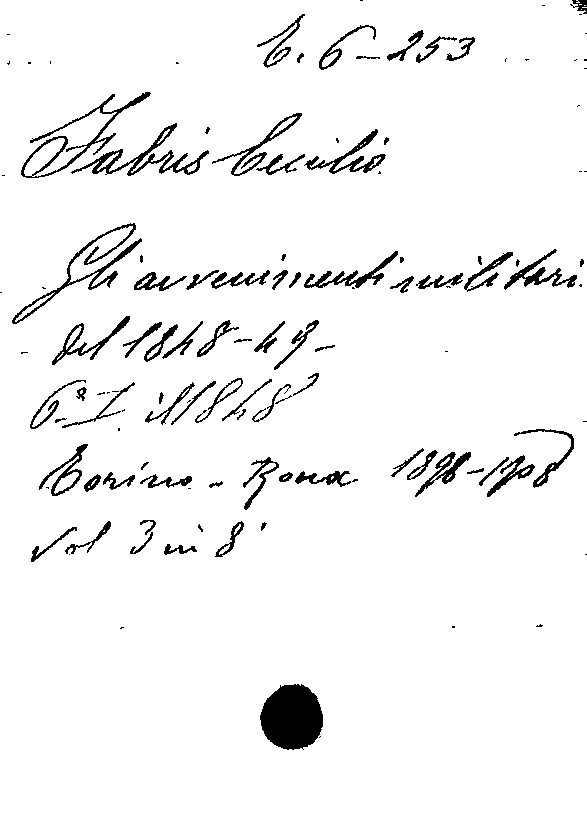 E. 6-253
Fabris Cecilio
Gli avvenimenti militari
del 1848-49-
Il 1848
Torino - Roma 1898-1908
Vol 3 in 8°